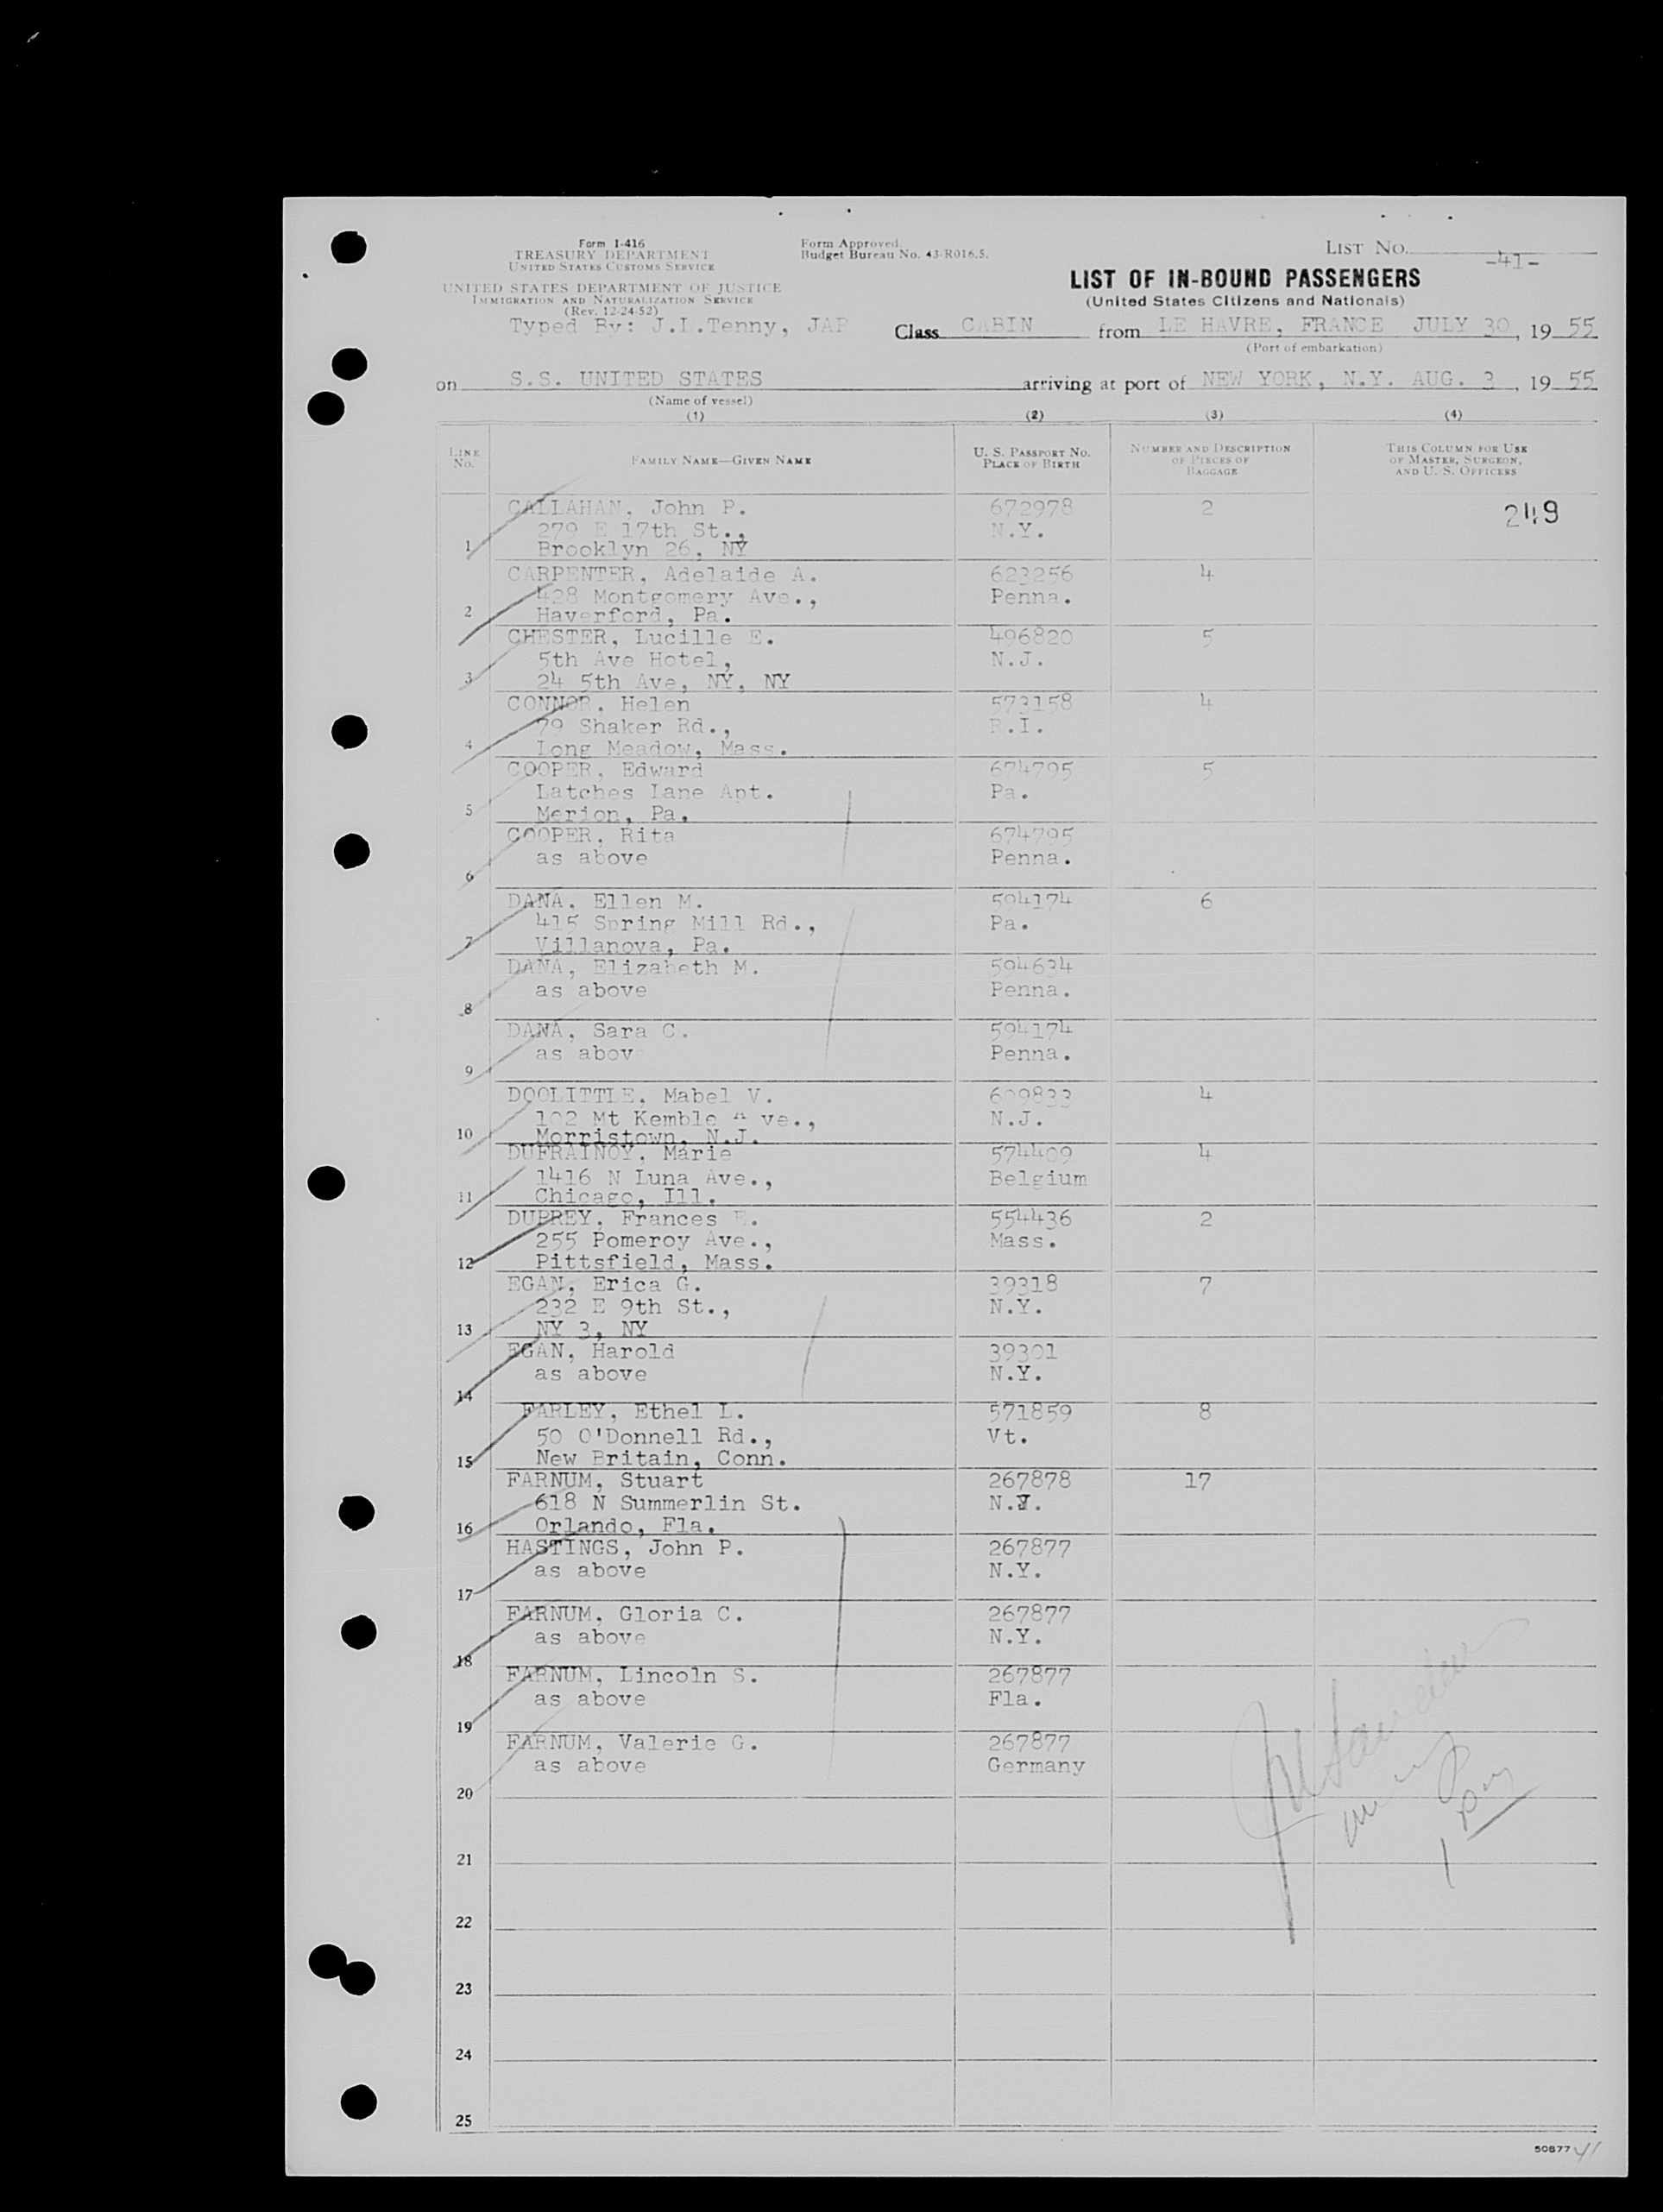 Form I-416
TREASURY DEPARTMENT
UNITED STATES CUSTOMS SERVICE
UNITED STATES DEPARTMENT OF JUSTICE
IMMIGRATION AND NATURALIZATION SERVICE
(Rev. 12-24-52)
Typed By: J.L.Tenny, JAP
Form Approved.
Budget Bureau No. 43-R016.5.
LIST No. -41-
LIST OF IN-BOUND PASSENGERS
(United States Citizens and Nationals)
Class CABIN from LE HAVRE, FRANCE JULY 30, 19 55
(Port of embarkation)
on S.S. UNITED STATES arriving at port of NEW YORK, N.Y. AUG. 3, 19 55
(Name of vessel)
(1) (2) (3) (4)
LINE No. FAMILY NAME—GIVEN NAME U. S. PASSPORT No. PLACE OF BIRTH NUMBER AND DESCRIPTION OF PIECES OF BAGGAGE THIS COLUMN FOR USE OF MASTER, SURGEON, AND U. S. OFFICERS
CALLAHAN, John P. 672978 2 249
279 E 17th St., N.Y.
1 Brooklyn 26, NY
CARPENTER, Adelaide A. 623256 4
428 Montgomery Ave., Penna.
2 Haverford, Pa.
CHESTER, Lucille E. 496820 5
5th Ave Hotel, N.J.
3 24 5th Ave, NY, NY
CONNOR, Helen 573158 4
79 Shaker Rd., R.I.
4 Long Meadow, Mass.
COOPER, Edward 674795 5
Latches Lane Apt. Pa.
5 Merion, Pa.
COOPER, Rita 674795
as above Penna.
6
DANA, Ellen M. 594174 6
415 Spring Mill Rd., Pa.
7 Villanova, Pa.
DANA, Elizabeth M. 594634
as above Penna.
8
DANA, Sara C. 594174
as abov Penna.
9
DOOLITTLE, Mabel V. 609833 4
102 Mt Kemble A ve., N.J.
10 Morristown, N.J.
DUFRAINOY, Marie 574409 4
1416 N Luna Ave., Belgium
11 Chicago, Ill.
DUPREY, Frances E. 554436 2
255 Pomeroy Ave., Mass.
12 Pittsfield, Mass.
EGAN, Erica G. 39318 7
232 E 9th St., N.Y.
13 NY 3, NY
EGAN, Harold 39301
as above N.Y.
14
FARLEY, Ethel L. 571859 8
50 O'Donnell Rd., Vt.
15 New Britain, Conn.
FARNUM, Stuart 267878 17
618 N Summerlin St.
16 Orlando, Fla.
HASTINGS, John P. 267877
as above N.Y.
17
FARNUM, Gloria C. 267877
as above N.Y.
18
FARNUM, Lincoln S. 267877
as above Fla.
19
FARNUM, Valerie G. 267877
as above Germany
20
21
22
23
24
25
50877 41